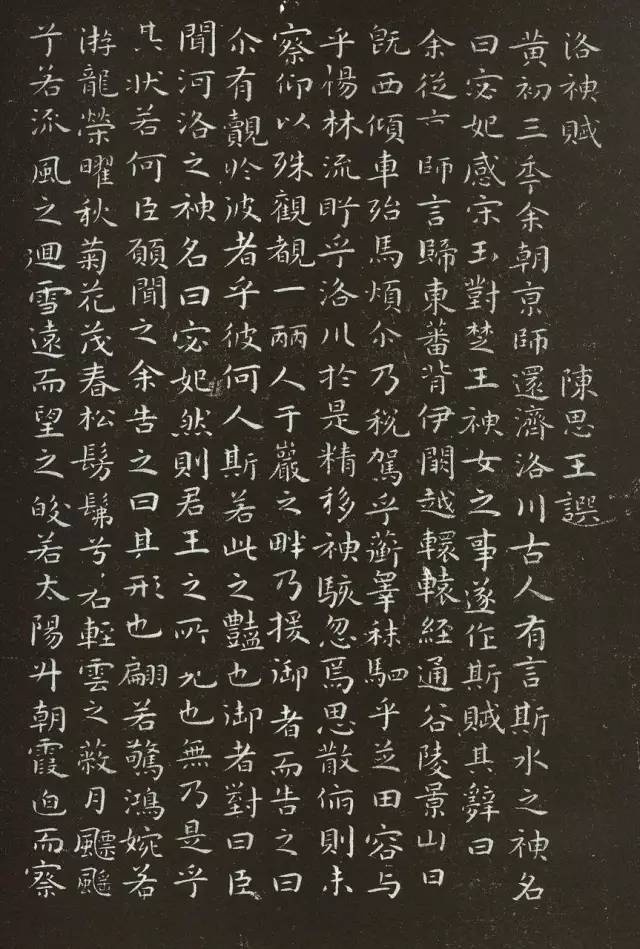 洛神賦　陳思王譔
黄初三年余朝京師還濟洛川古人有言斯水之神名
曰宓妃感宋玉對楚王神女之事遂作斯賦其辭曰
余從京師言歸東蕃背伊闕越轘轅經通谷陵景山日
旣西傾車殆馬煩尒乃稅駕乎蘅皋秣駟乎芝田容与
乎楊林流眄乎洛川於是精移神駭忽焉思散俯則未
察仰以殊觀覩一麗人于巖之畔乃援御者而告之曰
尒有覿於彼者乎彼何人斯若此之豔也御者對曰臣
聞河洛之神名曰宓妃然則君王之所見也無乃是乎
其狀若何臣願聞之余告之曰其形也翩若驚鴻婉若
游龍榮曜秋菊花茂春松髣髴兮若輕雲之蔽月飄颻
兮若流風之迴雪遠而望之皎若太陽升朝霞迫而察